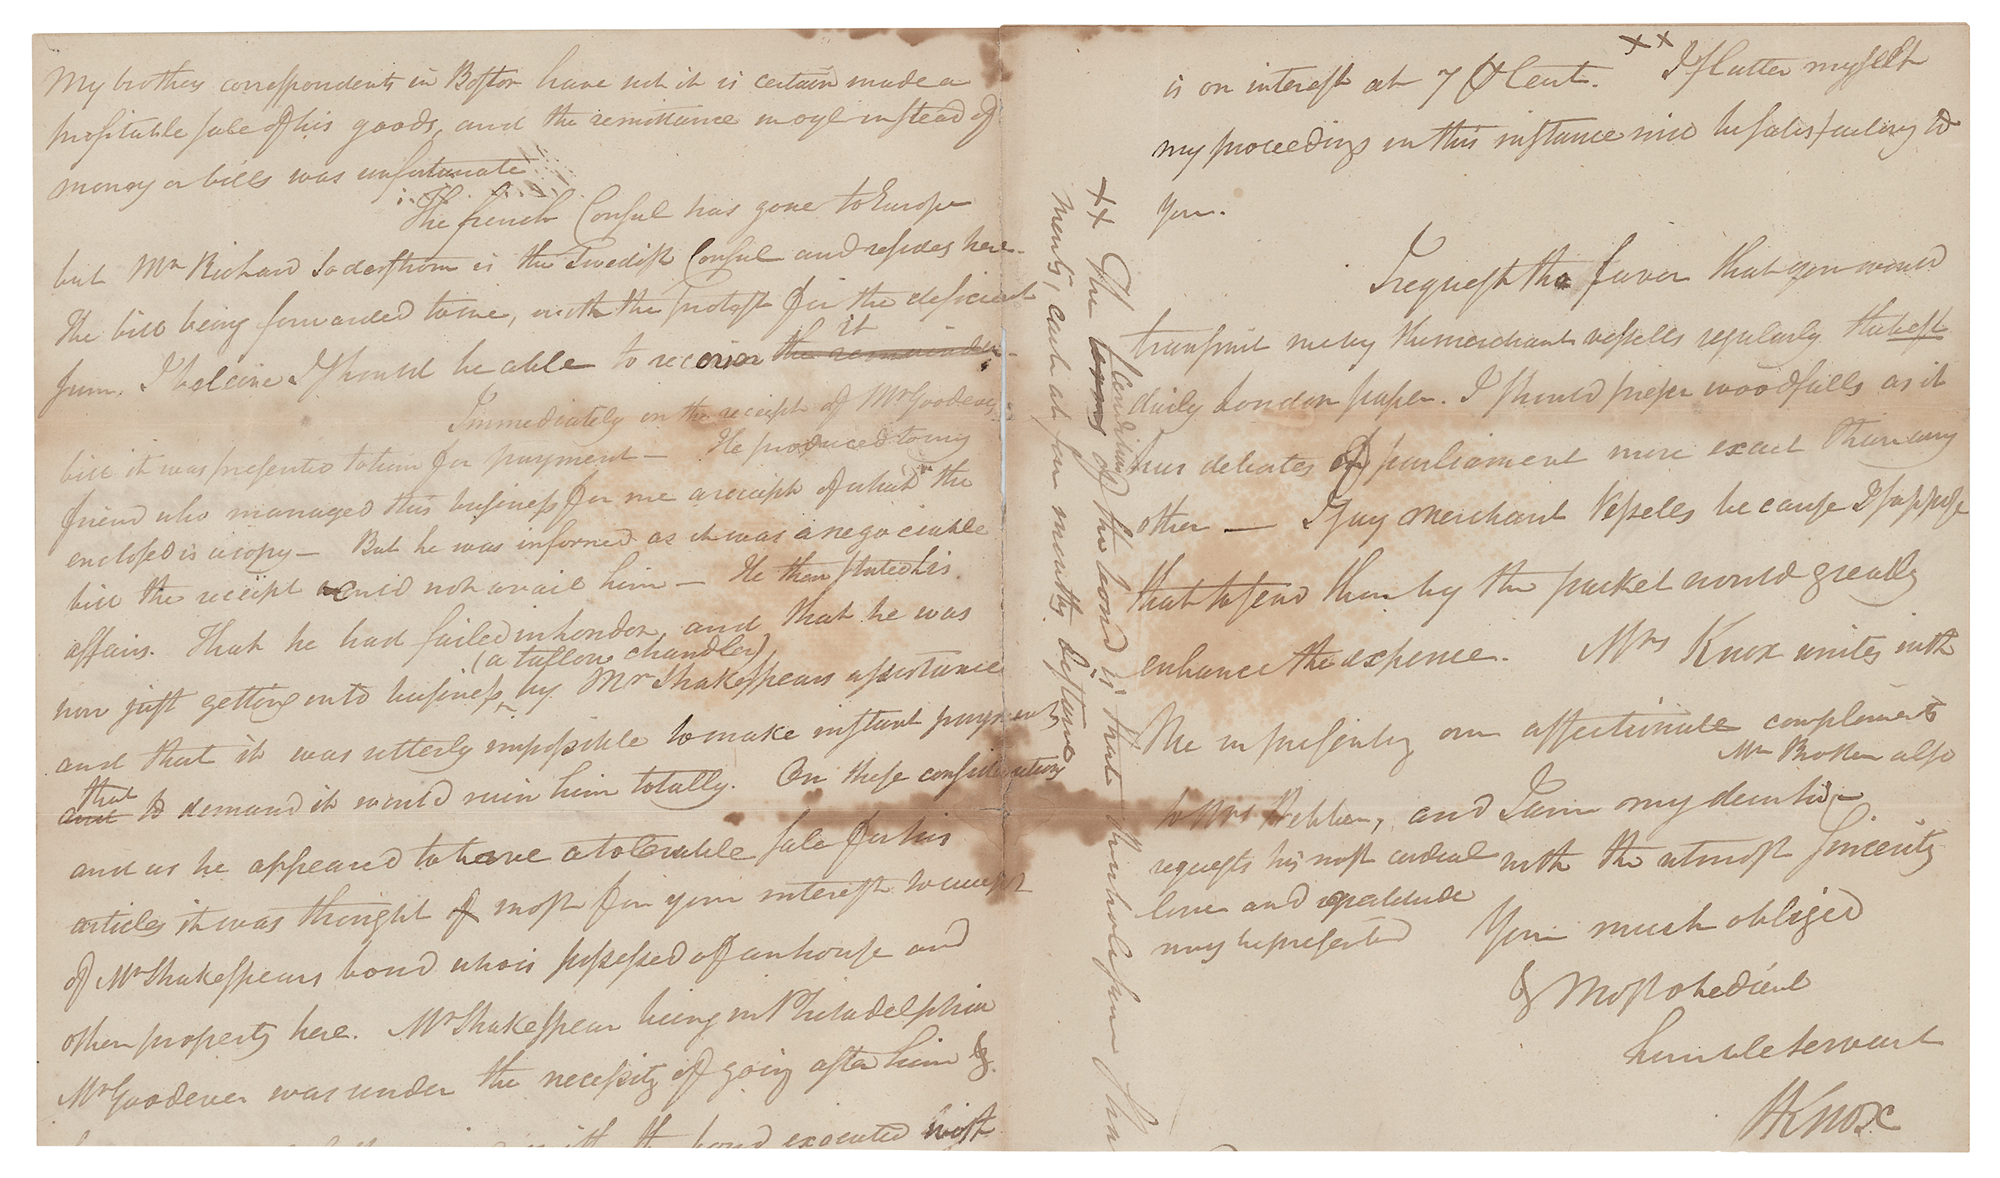 My brothers correspondents in Boston have not it is certain made a
profitable sale of his goods, and the remittance in oyl instead of
money or bills was unfortunate
The french Consul has gone to Europe
but Mr Richard Soderstrom is the Swedish Consul and resides here.
The bill being forwarded to me, with the Protest for the deficient
sum. I beleive I should be able to recover the remainder it
Immediately on the receipt of Mr Goodeves
bill it was presented to him for payment — He produced to my
friend who managed this business for me a receipt of which the
enclosed is a copy — But he was informed as it was a negociable
bill the receipt could not avail him — He then stated his
affairs. That he had failed in London, and that he was
now just getting into business, by (a tallow chandler) Mr Shakespears assistance
and that it was utterly impossible to make instant payment
and that to demand it would ruin him totally. On these considerations
and as he appeared to have a tolerable sale for his
articles it was thought of most for your interest to accept
of Mr Shakespears bond who is possessed of an house and
other property here. Mr Shakespear being in Philadelphia
Mr Goodever was under the necessity of going after him &
with the bond executed with
is on interest at 7 P Cent. xx I flatter myself
my proceedings in this instance will be satisfactory to
you.
I request the favor that you would
transmit me by the merchant vessels regularly the best
daily London paper. I should prefer woodfalls as it
has debates of parliament more exact than any
other — I say merchant Vessels because I suppose
that to send them by the packet would greatly
enhance the expence. Mrs Knox unites with
me in presenting our affectionate compliments
to Mrs and I am my dear sir
with the utmost sincerity
Your much obliged
& Most obedient
humble servant
HKnox
Mr also
requests his most cordial
love and gratitude
may be presented
xx The terms conditions of the bond is that the whole sum shall
ments, each at four months distance